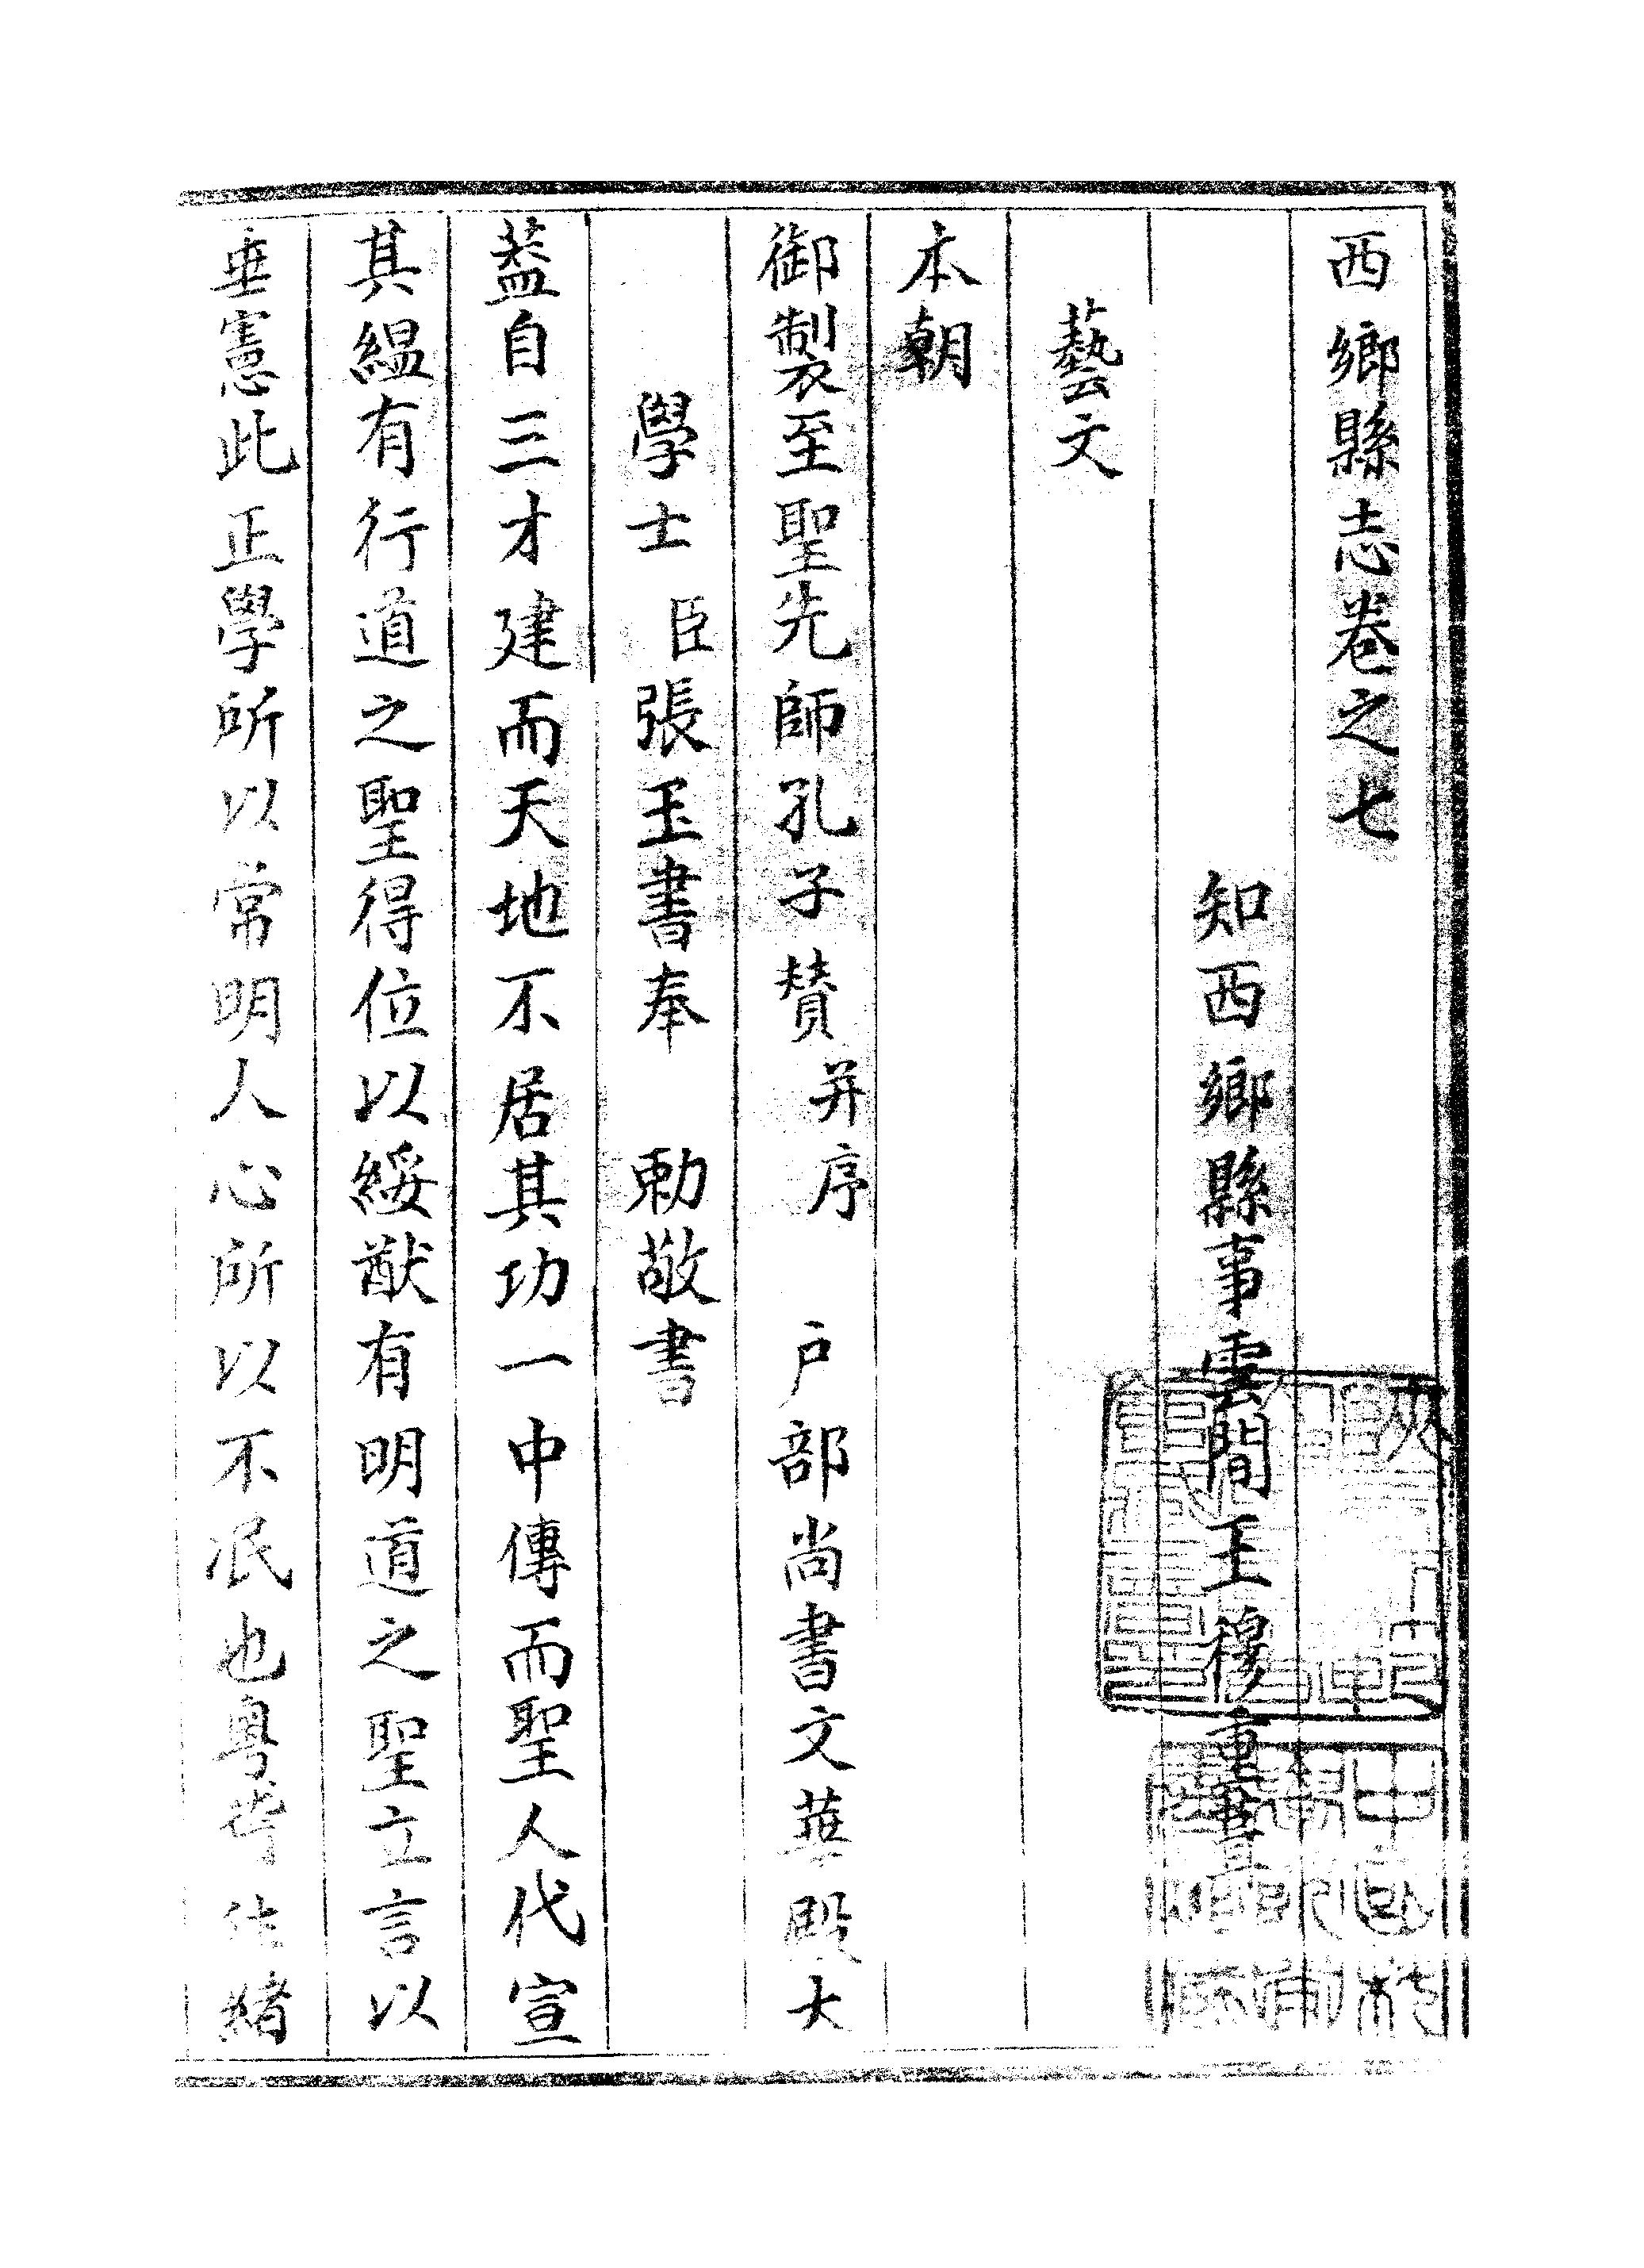 西鄉縣志卷之七
知西鄉縣事雲間王穆重纂
藝文
本朝
御製至聖先師孔子贊并序　户部尚書文華殿大
學士臣張玉書奉　勅敬書
葢自三才建而天地不居其功一中傳而聖人代宣
其緼有行道之聖得位以綏猷有明道之聖立言以
垂憲此正學所以常明人心所以不泯也粤稽徃緒